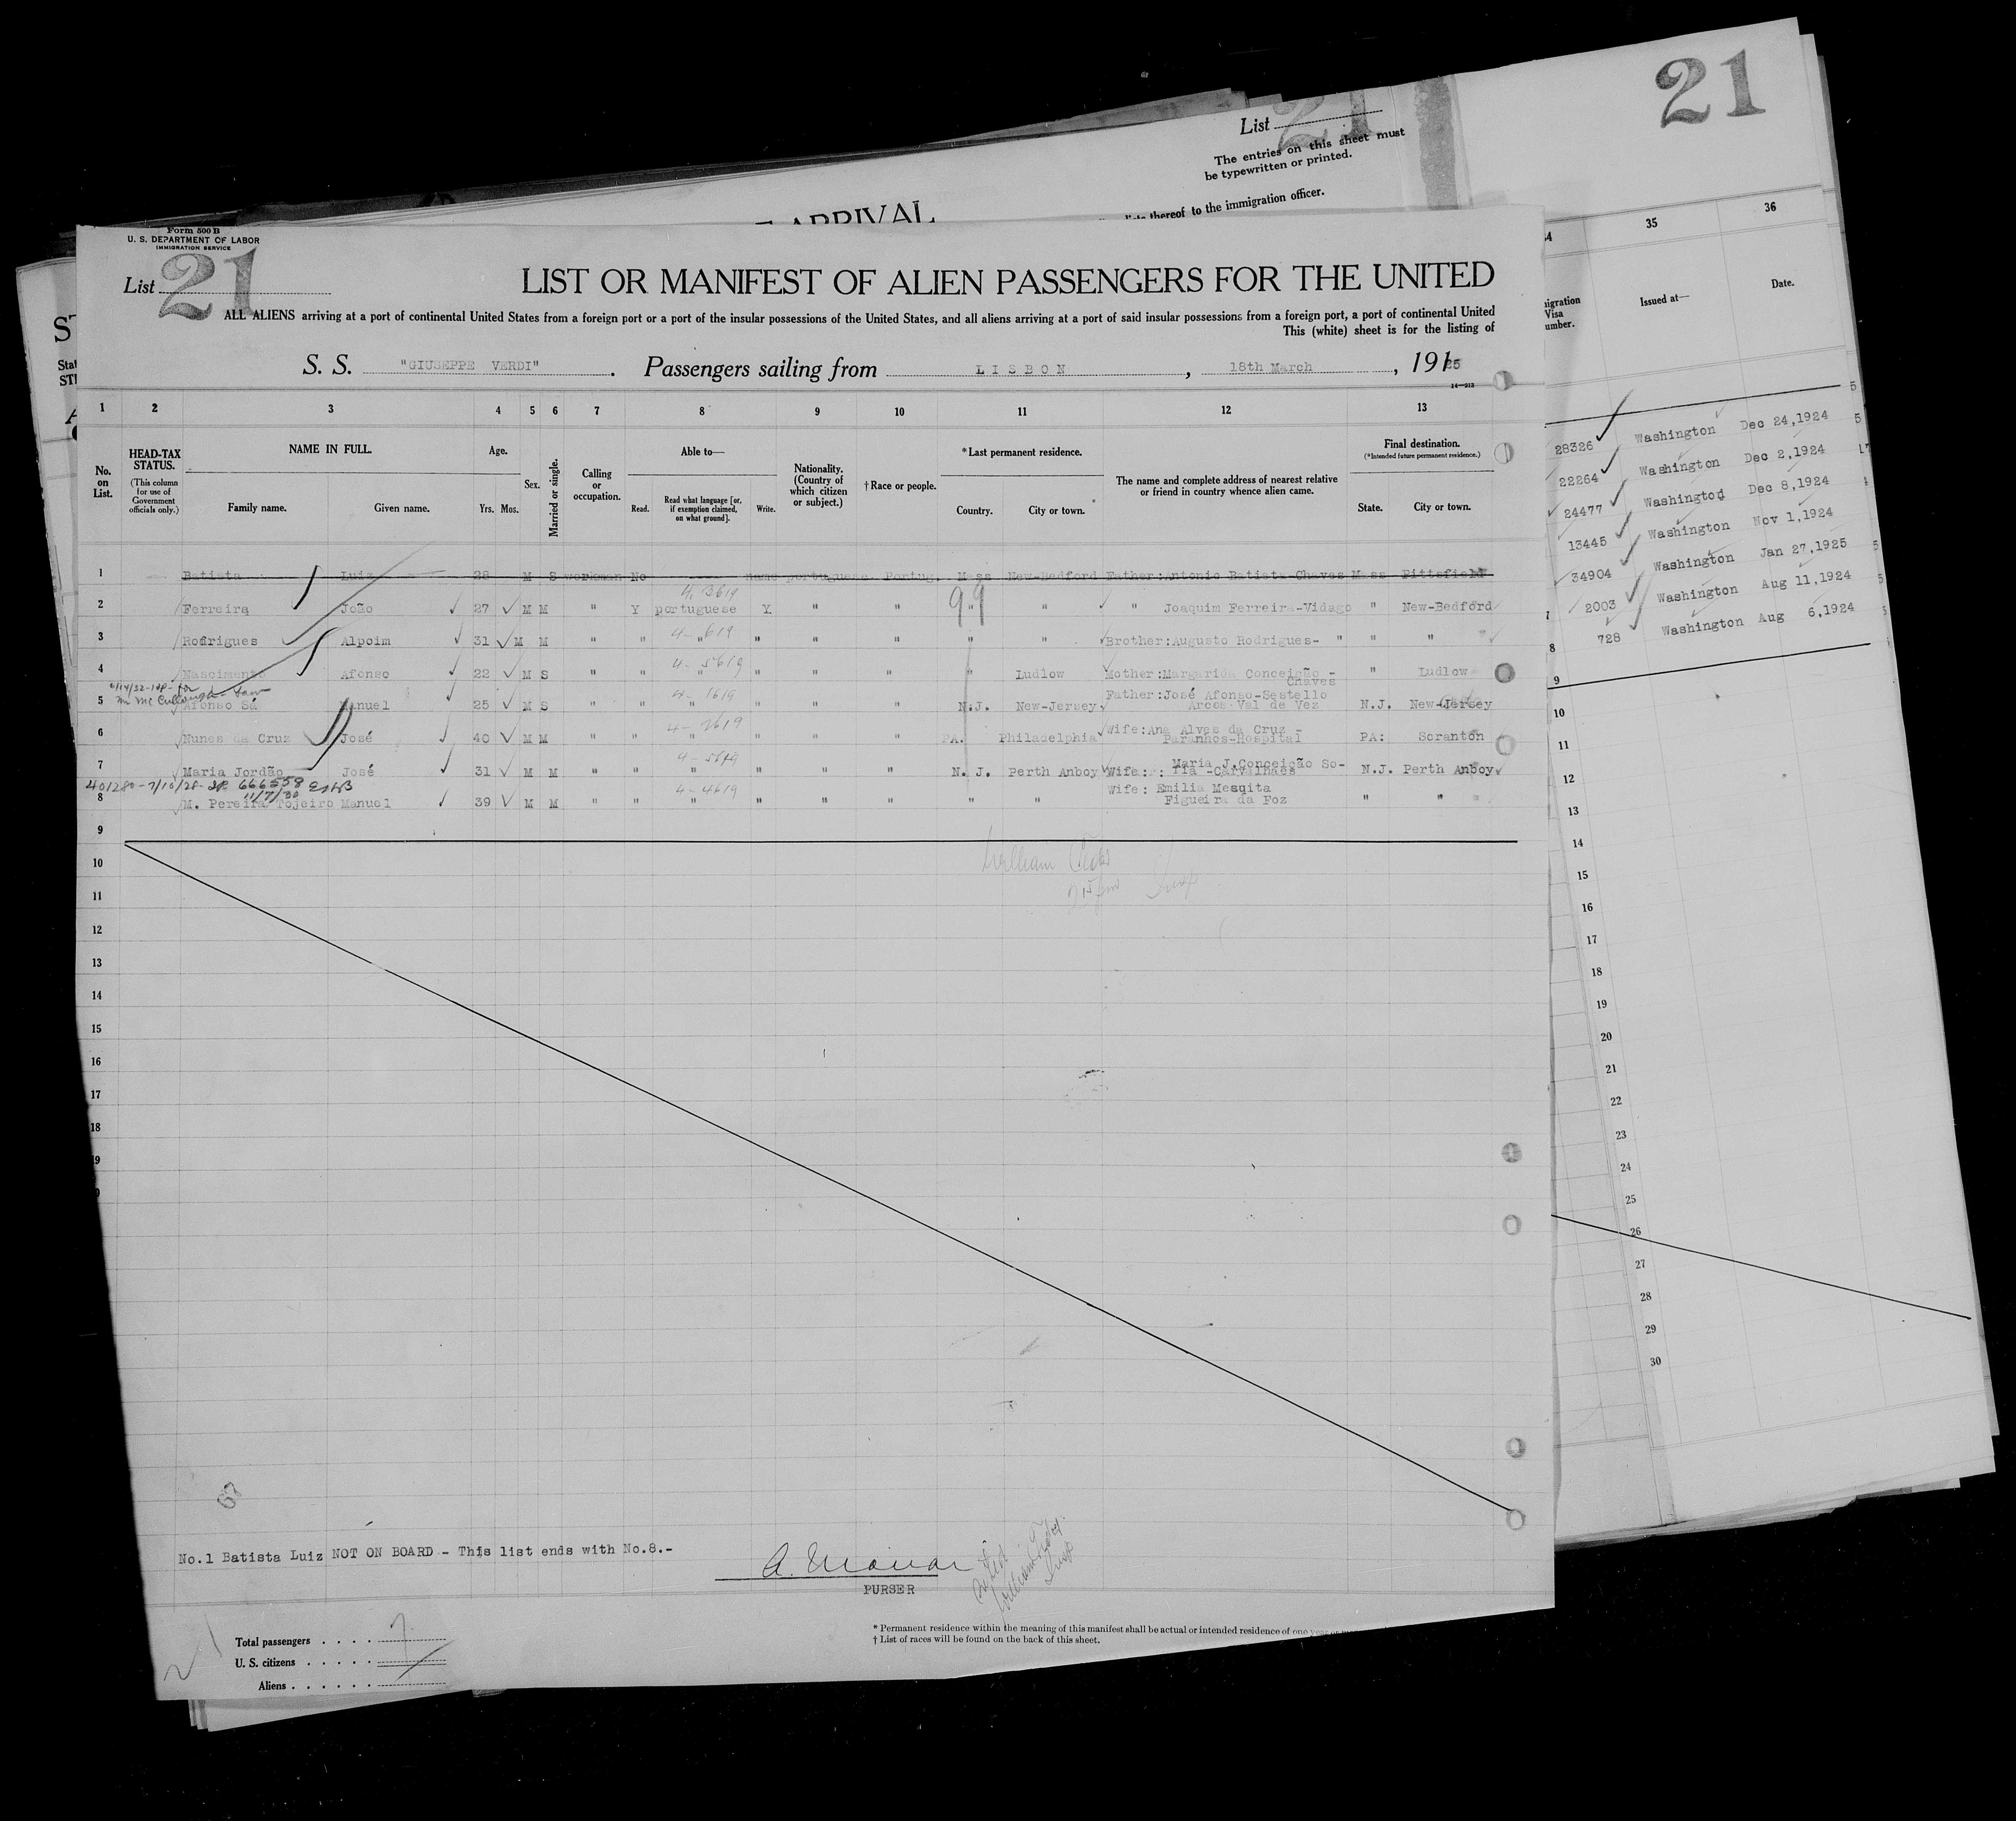 21
List
The entries on this sheet must
be typewritten or printed.
thereof to the immigration officer.
ARRIVAL
Form 500 B
U. S. DEPARTMENT OF LABOR
IMMIGRATION SERVICE
List 21
LIST OR MANIFEST OF ALIEN PASSENGERS FOR THE UNITED
ALL ALIENS arriving at a port of continental United States from a foreign port or a port of the insular possessions of the United States, and all aliens arriving at a port of said insular possessions from a foreign port, a port of continental United
This (white) sheet is for the listing of
S. S. "GIUSEPPE VERDI". Passengers sailing from LISBON, 18th March, 1925
1 2 3 4 5 6 7 8 9 10 11 12 13
No. on List.
HEAD-TAX STATUS.
(This column for use of Government officials only.)
NAME IN FULL.
Family name. Given name.
Age.
Yrs. Mos.
Sex.
Married or single.
Calling or occupation.
Able to—
Read. Read what language [or, if exemption claimed, on what ground]. Write.
Nationality. (Country of which citizen or subject.)
† Race or people.
*Last permanent residence.
Country. City or town.
The name and complete address of nearest relative or friend in country whence alien came.
Final destination.
(*Intended future permanent residence.)
State. City or town.
1 Batista Luiz 28 M S workman No none portuguese Portug. Mass New-Bedford Father:Antonio Batista-Chaves Mass Pittsfield
4. 3619
2 Ferreira João 27 M M " Y portuguese Y " " " " " Joaquim Ferreira-Vidago " New-Bedford
99
4- 619
3 Rodrigues Alpoim 31 M M " " " " " " " " Brother:Augusto Rodrigues- " " "
4- 5619
4 Nascimento Afonso 22 M S " " " " " " " Ludlow Mother:Margarida Conceição - Chaves " Ludlow
4- 1619
5 Afonso Sá Manuel 25 M S " " " " " " N.J. New-Jersey Father:José Afonso-Sestello Arcos Val de Vez N.J. New-Jersey
4- 2619
6 Nunes da Cruz José 40 M M " " " " " " PA. Philadelphia Wife:Ana Alves da Cruz - Paranhos-Hospital PA: Scranton
7 Maria Jordão José 31 M M " " " " " " N. J. Perth Anboy Wife: : Maria J.Conceição So- Tia -Carvalhaes N.J. Perth Anboy
401280-7/10/28- 666558
11/7/30
4- 4619
8 M. Pereira Tojeiro Manuel 39 M M " " " " " " " " Wife: Emilia Mesquita Figueira da Foz " "
9
10
11
12
13
14
15
16
17
18
No.1 Batista Luiz NOT ON BOARD - This list ends with No.8.-
PURSER
Total passengers 7
U. S. citizens
Aliens
* Permanent residence within the meaning of this manifest shall be actual or intended residence of one year or
† List of races will be found on the back of this sheet.
21
35 36
Visa
Issued at— Date.
28326 Washington Dec 24,1924
22264 Washington Dec 2,1924
24477 Washington Dec 8,1924
13445 Washington Nov 1,1924
34904 Washington Jan 27,1925
2003 Washington Aug 11,1924
728 Washington Aug 6,1924
7
8
9
10
11
12
13
14
15
16
17
18
19
20
21
22
23
24
25
26
27
28
29
30